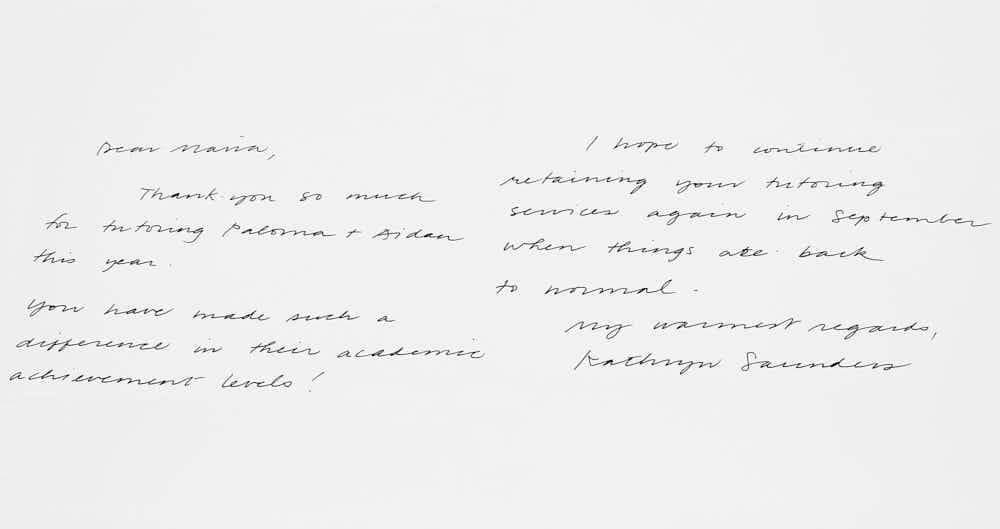 Dear Maria,
Thank you so much
for tutoring Paloma + Aidan
this year.
You have made such a
difference in their academic
achievement levels!
I hope to continue
retaining your tutoring
services again in September
when things are back
to normal.
My warmest regards,
Kathryn Saunders